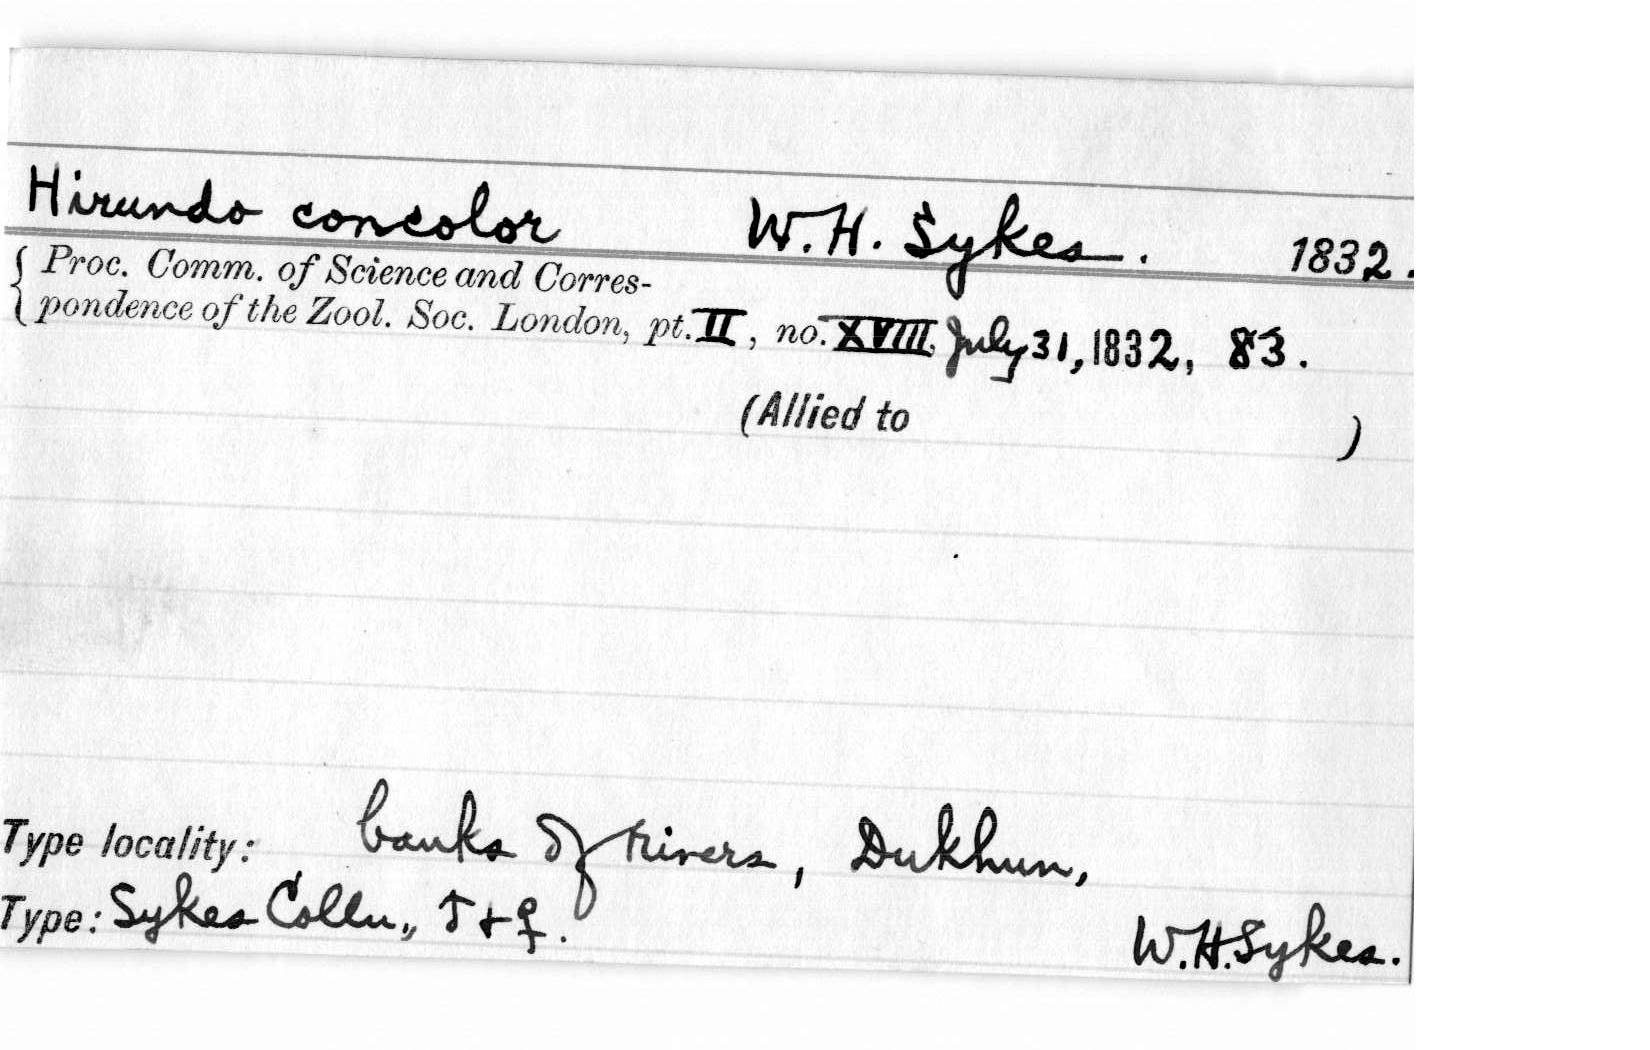 Hirundo concolor W.H. Sykes. 1832.
{ Proc. Comm. of Science and Corres-
pondence of the Zool. Soc. London, pt. II, no. XVIII, July 31, 1832, 83.
(Allied to )
Type locality: banks of rivers, Dukhun,
Type: Sykes Colln., ♂ + ♀. W.H. Sykes.